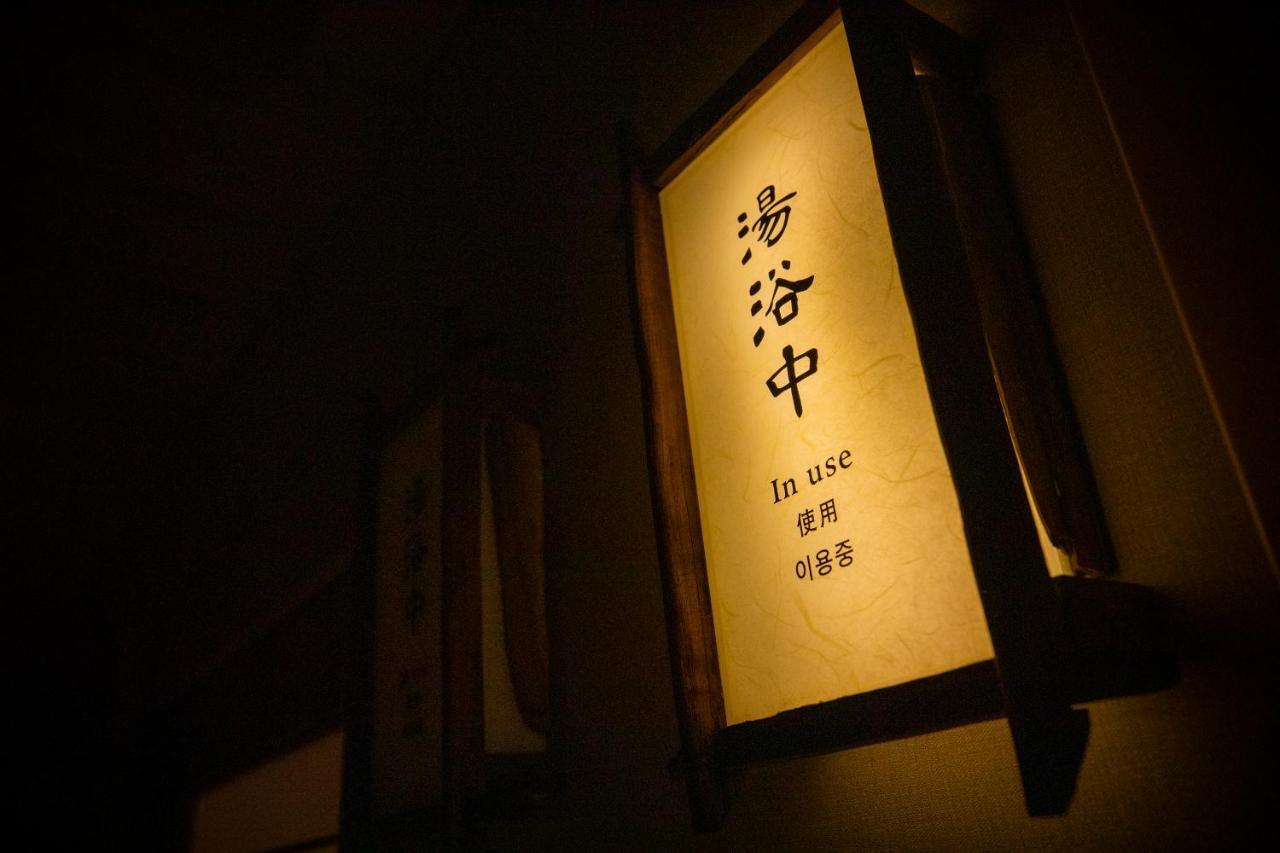 湯浴中
In use
使用
이용중